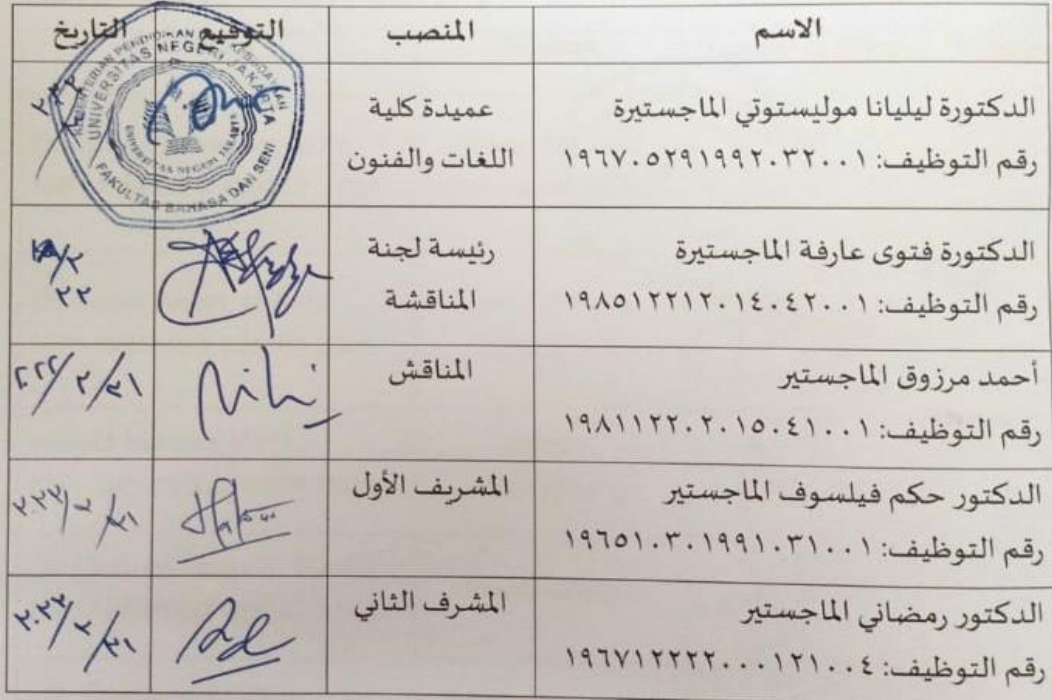 الاسم المنصب التوقيع التاريخ
الدكتورة ليليانا موليستوتي الماجستيرة
رقم التوظيف: ١٩٦٧٠٥٢٩١٩٩٢٠٣٢٠٠١
عميدة كلية
اللغات والفنون
UNIVERSITAS NEGERI JAKARTA
UNIVERSITAS NEGERI JAKARTA
FAKULTAS BAHASA DAN SENI
الدكتورة فتوى عارفة الماجستيرة
رقم التوظيف: ١٩٨٥١٢٢١٢٠١٤٠٤٢٠٠١
رئيسة لجنة
المناقشة
٢٢
أحمد مرزوق الماجستير
رقم التوظيف: ١٩٨١١٢٢٠٢٠١٥٠٤١٠٠١
المناقش
الدكتور حكم فيلسوف الماجستير
رقم التوظيف: ١٩٦٥١٠٣٠١٩٩١٠٣١٠٠١
المشريف الأول
٢٠٢٢/٢/٢١
الدكتور رمضاني الماجستير
رقم التوظيف: ١٩٦٧١٢٢٢٢٠٠٠١٢١٠٠٤
المشرف الثاني
٢٠٢٢/٢/٢١